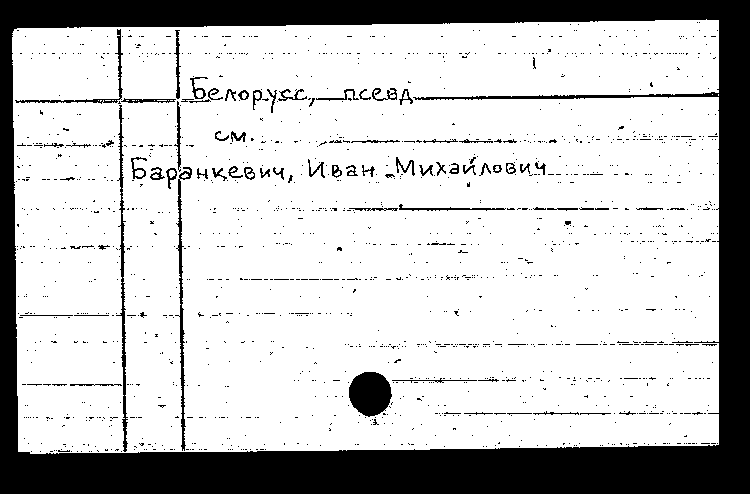 Белорусс, псевд
см.
Баранкевич, Иван Михайлович